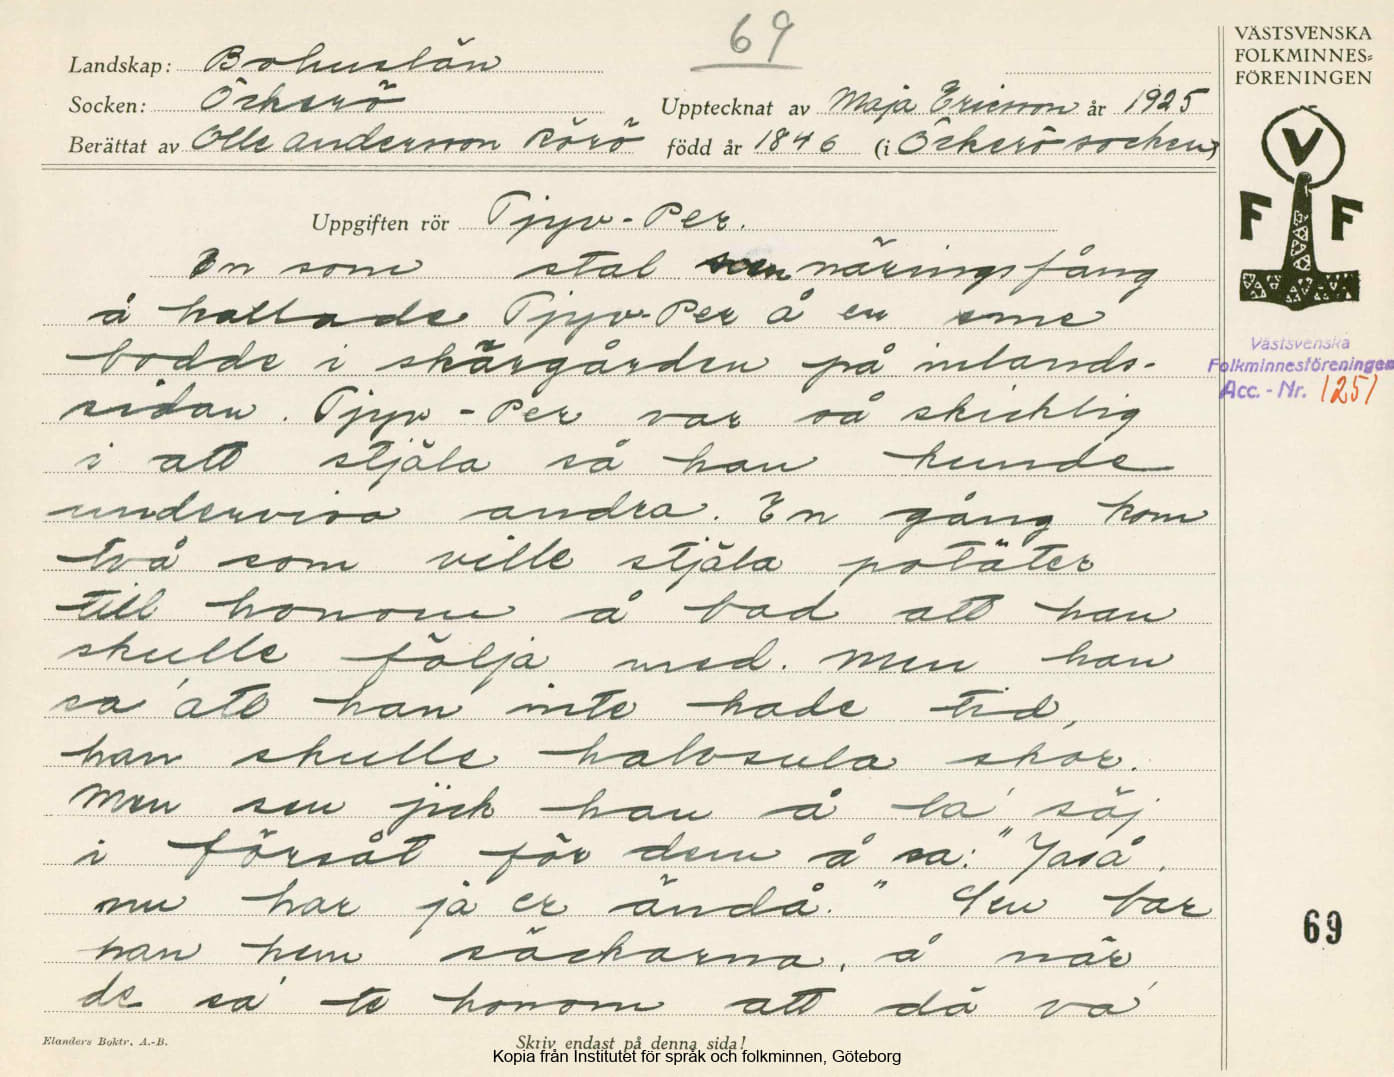 69
Landskap: Bohuslän
Socken: Öckerö
Upptecknat av Maja Ericson år 1925
Berättat av Olle Andersson Rörö född år 1846 (i Öckerö socken)
VÄSTSVENSKA
FOLKMINNES=
FÖRENINGEN
V
F F
Uppgiften rör Tjyv-Per.
En som stal som näringsfång
å kallade Tjyv-Per å en sme
bodde i skärgården på inlands-
sidan. Tjyv-Per var så skicklig
i att stjäla så han kunde
undervisa andra. En gång kom
två som ville stjäla potäter
till honom å bad att han
skulle följa med. Men han
sa' att han inte hade tid,
han skulle halvsula skor.
Men sen jick han å la' säj
i försåt för dem å sa: "Jaså,
nu har ja er ändå." Sen bar
han hem säckarna, å när
de sa' te honom att då va'
Västsvenska
Folkminnesföreningen
Acc. - Nr. 1251
69
Elanders Boktr. A.-B.
Skriv endast på denna sida!
Kopia från Institutet för språk och folkminnen, Göteborg